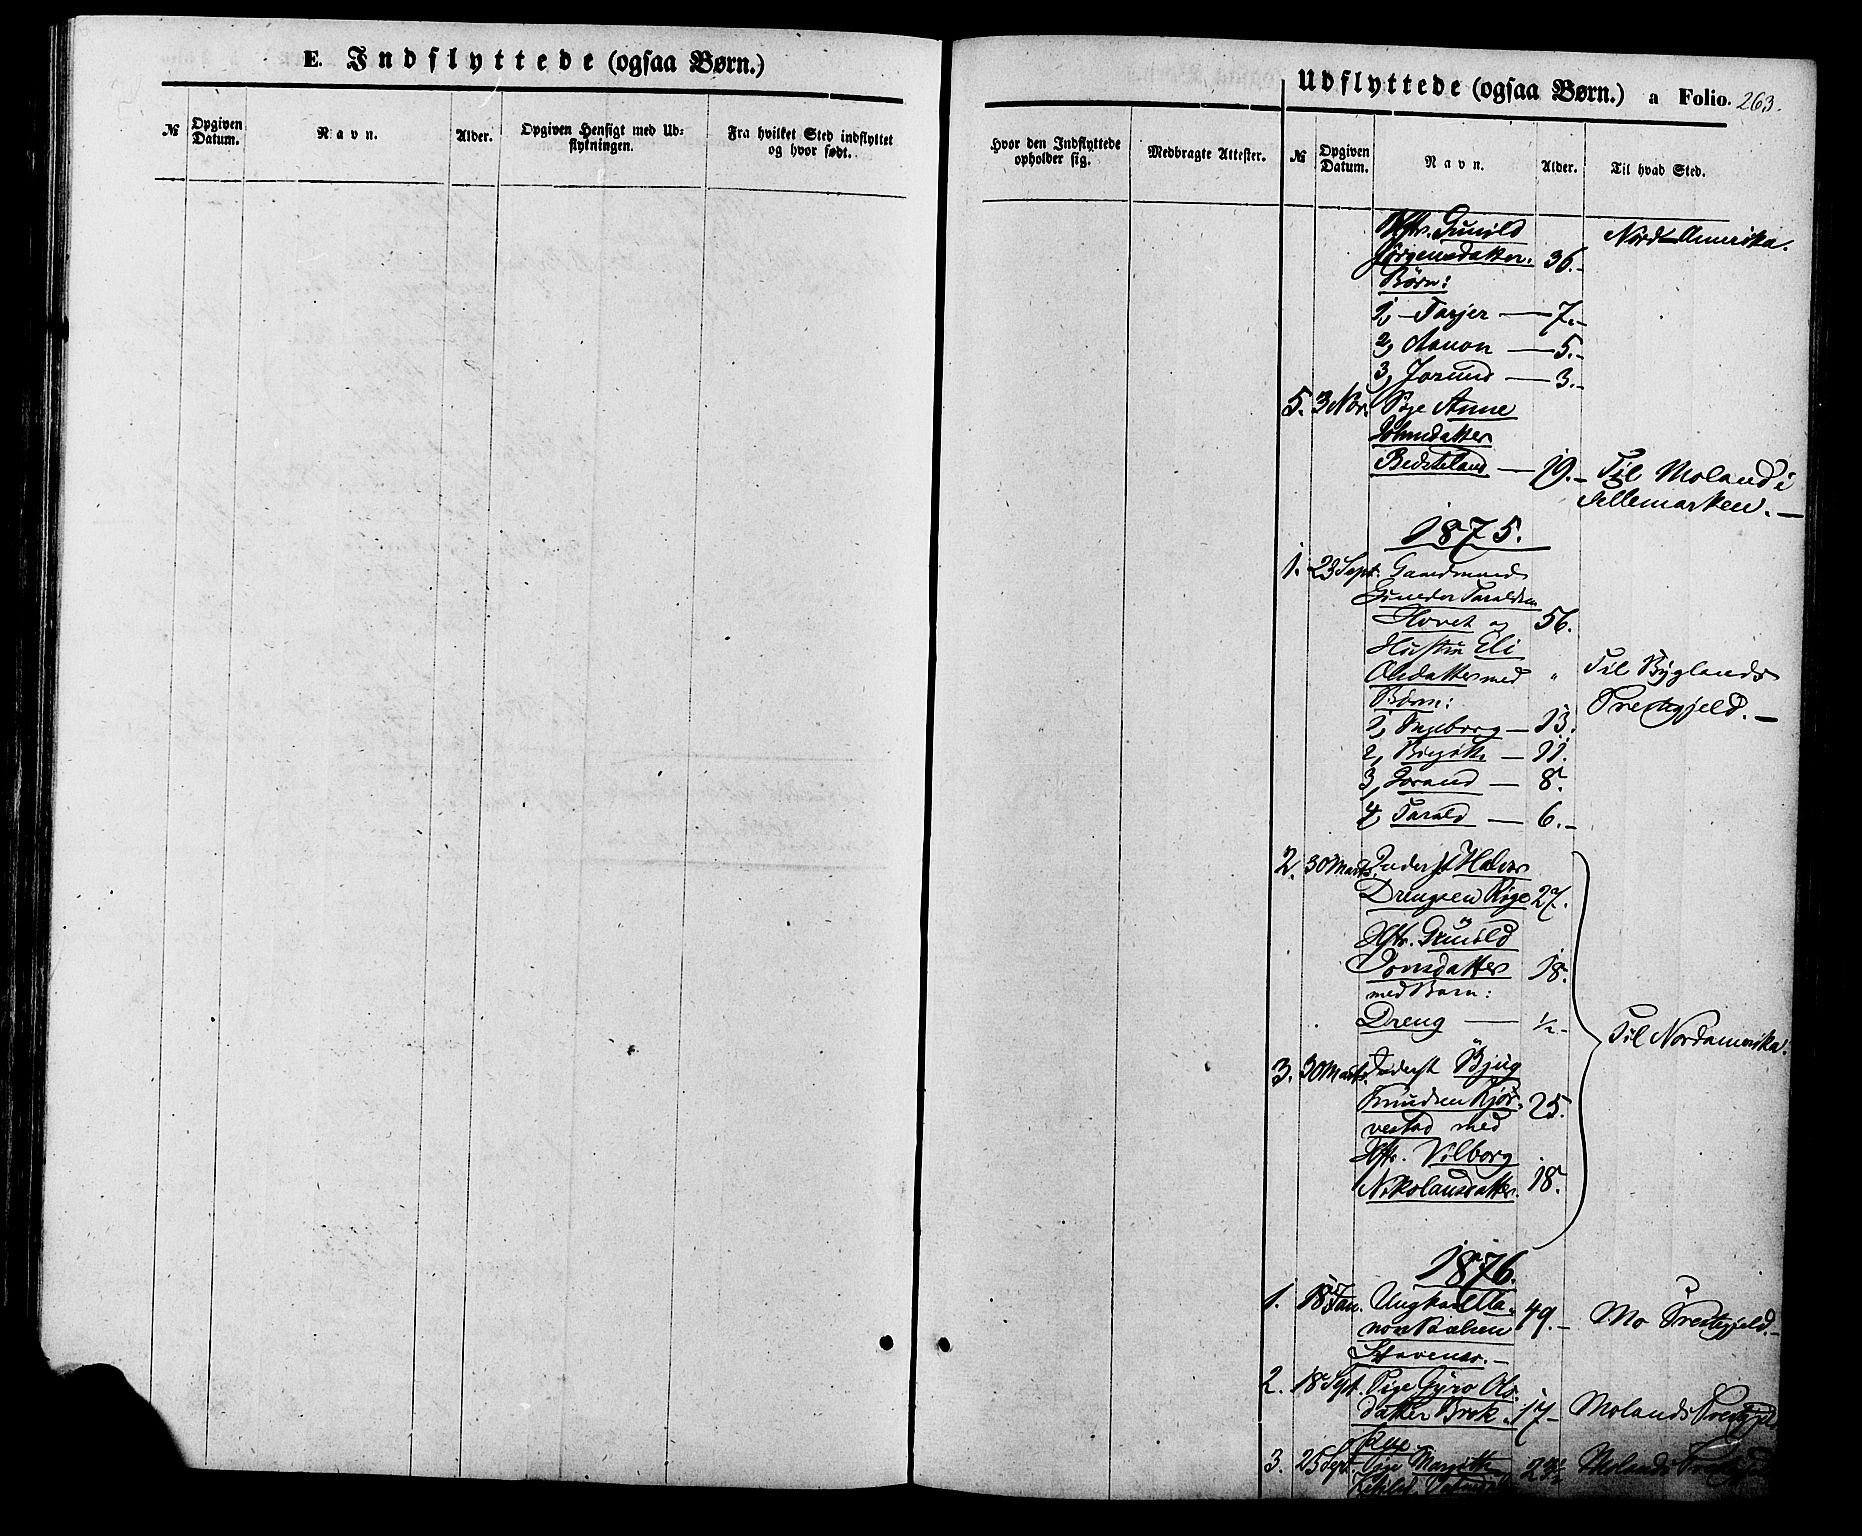 E. Indflyttede (ogsaa Børn.)
№
Opgiven Datum.
Navn.
Alder.
Opgiven Hensigt med Ud-
flytningen.
Fra hvilket Sted indflyttet
og hvor født.
Hvor den Indflyttede
opholder sig.
Medbragte Attester.
Udflyttede (ogsaa Børn.) a Folio. 263.
№
Opgiven Datum.
Navn.
Alder.
Til hvad Sted.
Hstr. Gunild Nord-Amerika.
Jørgensdatter. 36.-
Børn:
1, - Tarjer — 7.-
2, Aanon — 5.-
3, Jorund — 3.-
5. 3 Nov. Pige Anne
Johnsdatter
Bedsteland — 19.- Til Moland i
Tellemarken. —
1875.
1. 23 Sept. Gaardmand
Gunder Taraldsen
Hovet og 56.
Hustru Eli
Olsdatter med " Til Byglands
Børn: Prestegjeld. —
1, Ingeborg — 13.
2, Birgitte — 11.
3, Jorand — 8.
4, Tarald — 6.-
2. 30 Marts. Inderst Halvor
Drengsen Rige 27.
og
Hstr. Gunild
Jonsdatter 18.
med Barn:
Dreng — ½-
Til Nordamerika.
3. 30 Marts. Inderst Bjug
Knudsen Kjør- 25.
vestad med
Hstr. Vilborg
Nikolausdatter. 18.
1876.
1. 18 Jan. Ungkarl Aa- 49.- Mo Prestegjeld.-
non
Stavenes. -
2. 18 Sept. Pige Gyro Ols-
datter Brok- 17- Molands Prestegjeld
3. 25 Sept. Pige Margith Molands